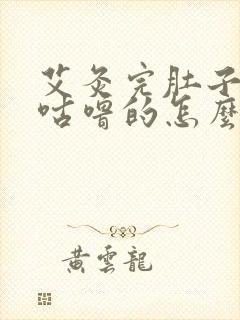 艾灸完肚子
咕嚕的怎麼
黃雲龍